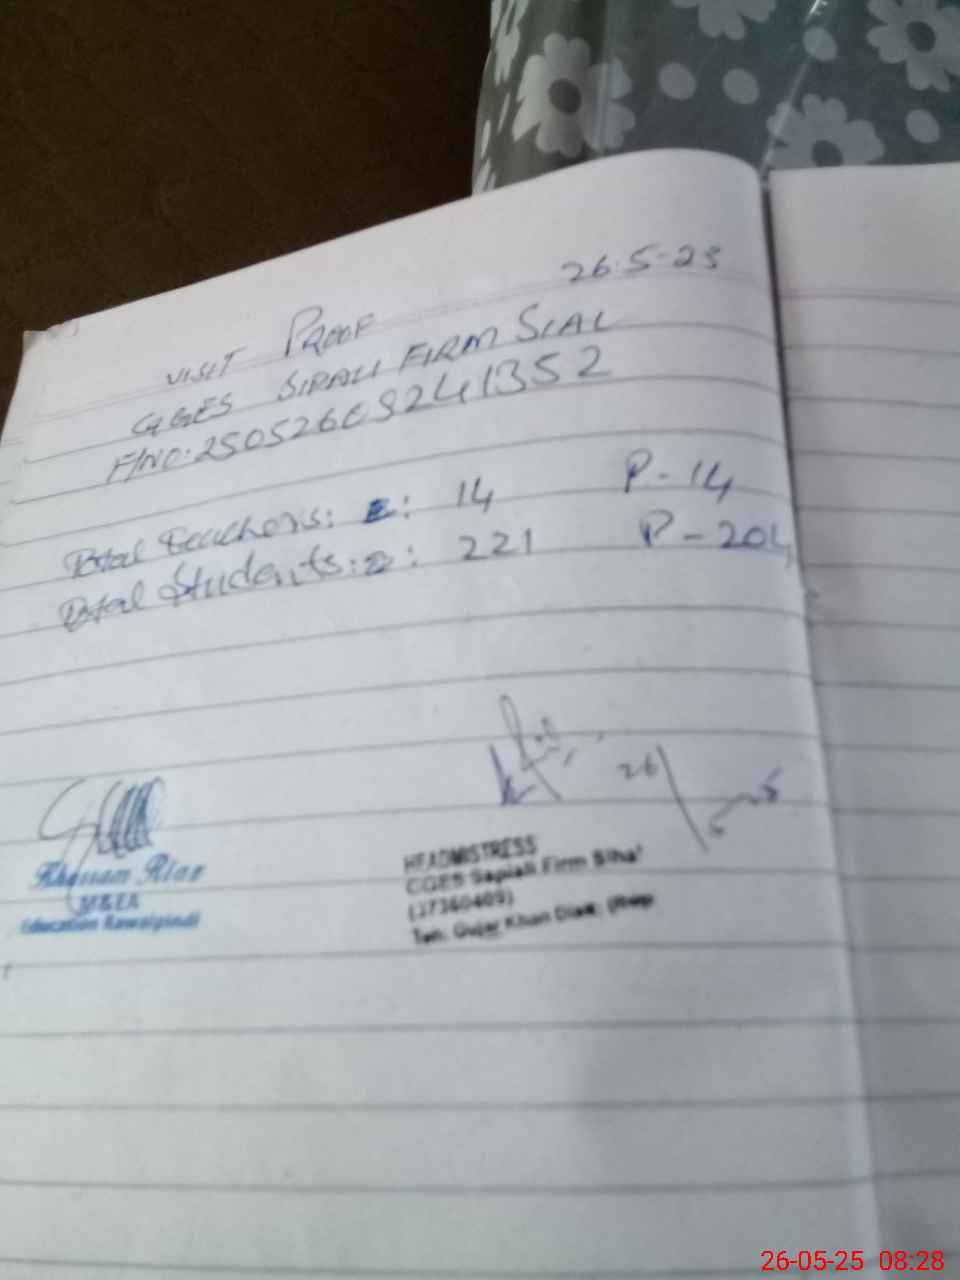 26.5.25
VISIT PROOF
GGES SIRALI FIRM SIAL
F/NO: 25052609241352
Total Teachers: 14 P-14
Total Students: 221 P-204
26/5-25
Khurram Riaz
M&EA
Education Rawalpindi
HEADMISTRESS
GGES Sapiali Firm Sihal
(37360409)
Teh: Gujar Khan Distt: (Rwp
26-05-25 08:28